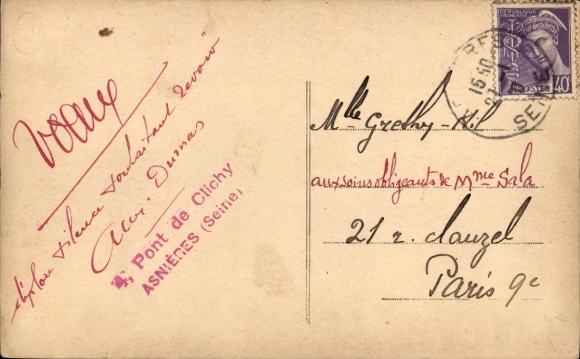 Vœux
déplore silence souhaitant revoir
Alex. Dumas
4, Pont de Clichy
ASNIÈRES (Seine)
RÉPUBLIQUE
FRANÇAISE
POSTES
40c
15 30
SEINE
Mlle Grethy-
aux soins obligeants de Mme Sals
21 r. Clauzel
Paris 9e